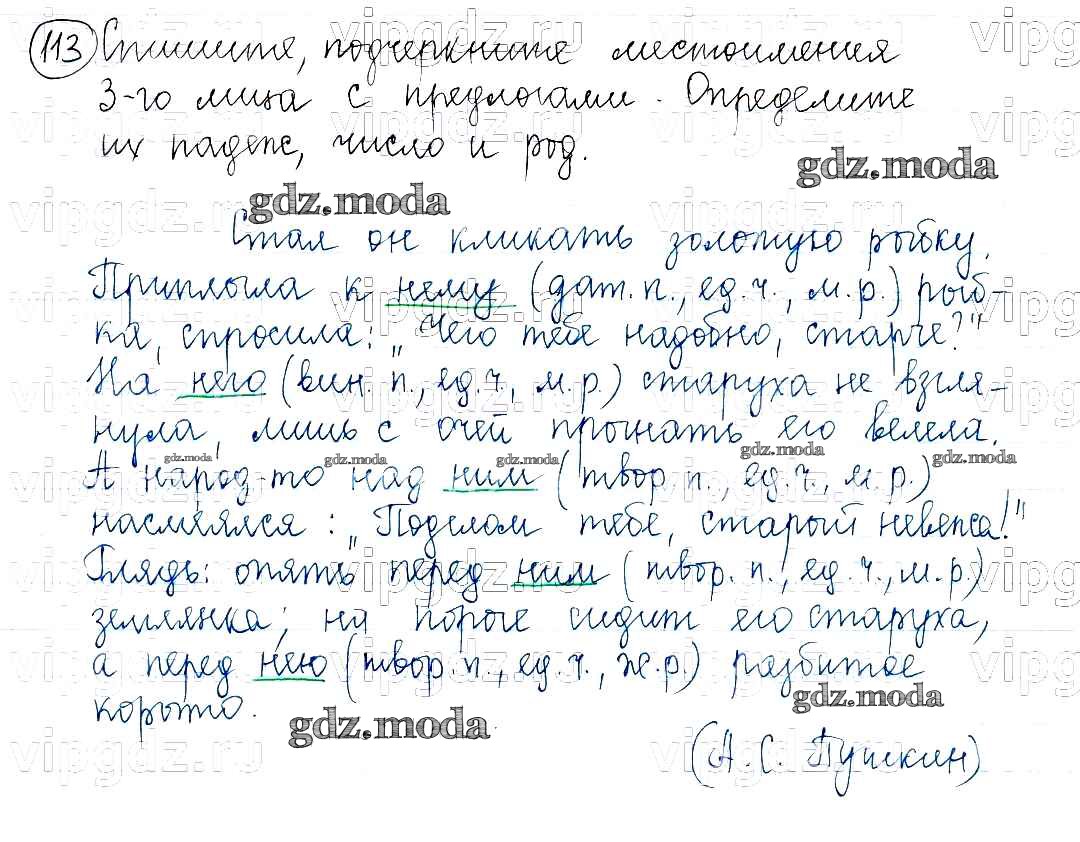 113 Спишите, подчеркните местоимения
3-го лица с предлогами. Определите
их падеж, число и род.
gdz.moda
gdz.moda
Стал он кликать золотую рыбку.
Приплыла к нему (дат. п., ед. ч., м. р.) рыб-
ка, спросила: „Чего тебе надобно, старче?"
На него (вин. п., ед. ч., м. р.) старуха не взгля-
нула, лишь с очей прогнать его велела.
gdz.moda gdz.moda gdz.moda gdz.moda gdz.moda
А народ-то над ним (твор. п., ед. ч., м. р.)
насмеялся: „Поделом тебе, старый невежа!"
Глядь: опять перед ним (твор. п., ед. ч., м. р.)
землянка; на пороге сидит его старуха,
а перед нею (твор. п., ед. ч., ж. р.) разбитое
gdz.moda
корыто.
gdz.moda
(А. С. Пушкин)
vipgdz.ru